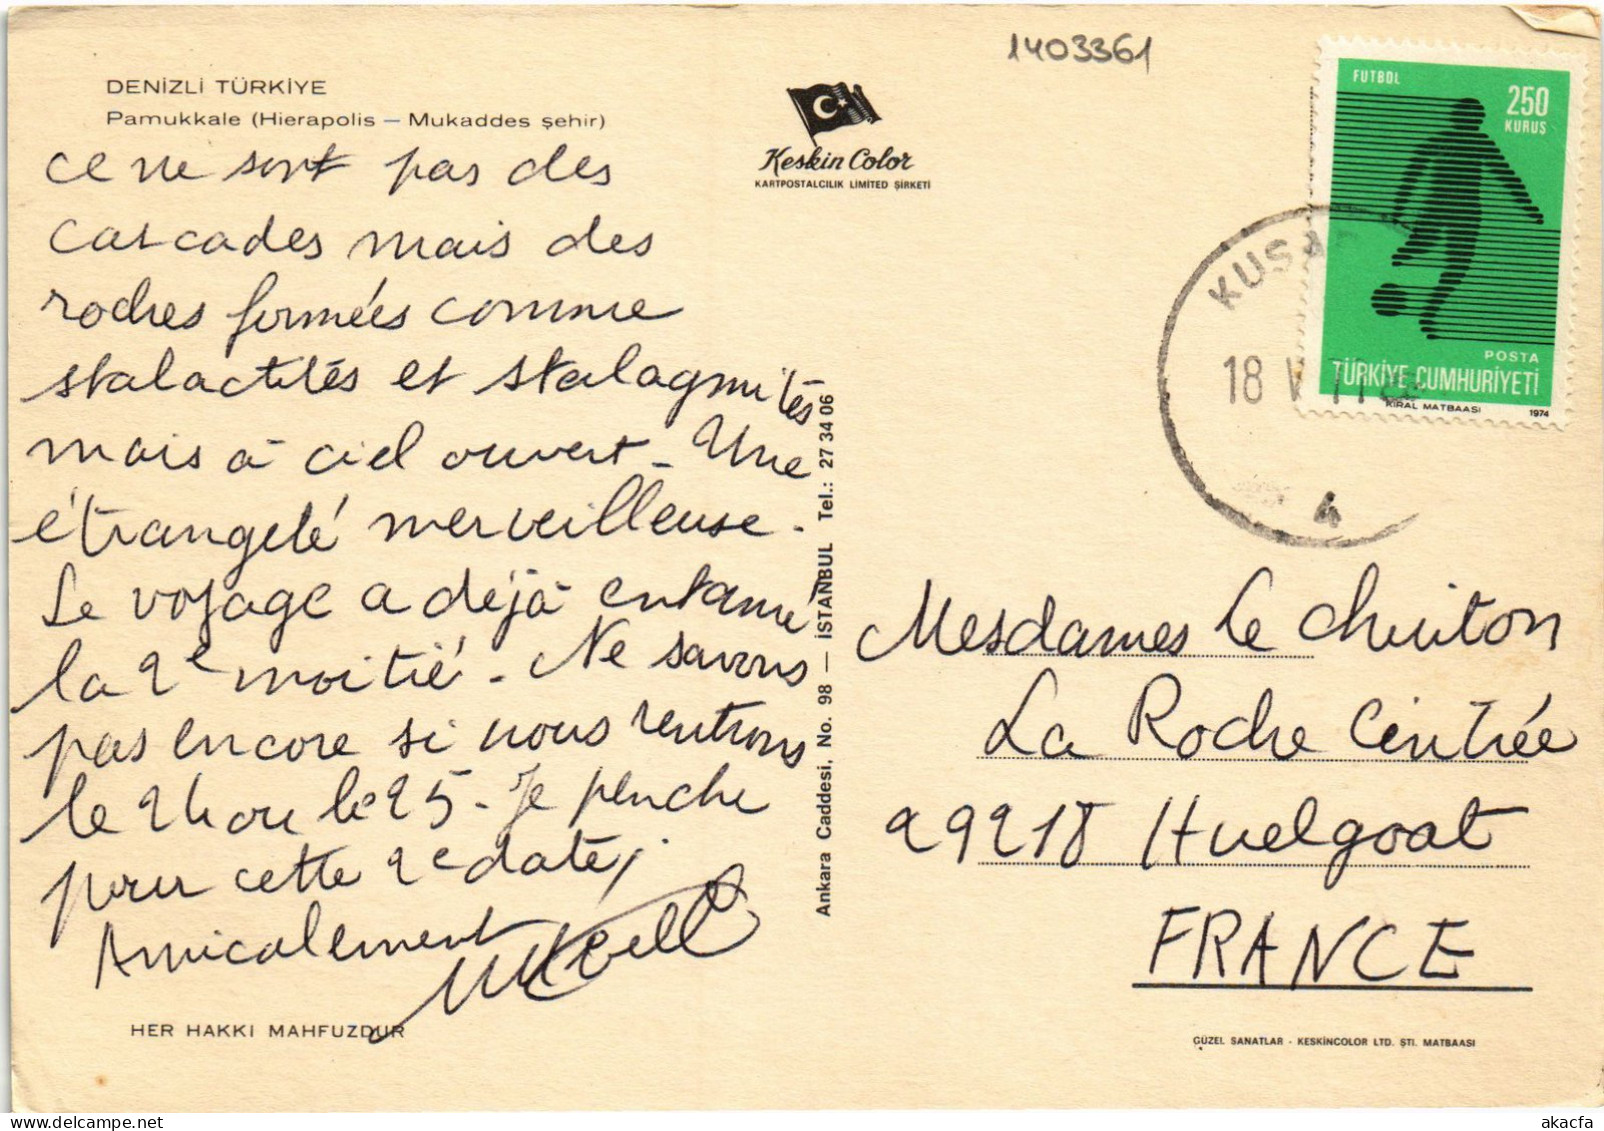 1403361
DENİZLİ TÜRKİYE
Pamukkale (Hierapolis – Mukaddes şehir)
ce ne sont pas des
cascades mais des
roches formées comme
stalactites et stalagmites
mais à ciel ouvert - Une
étrangeté merveilleuse -
Le voyage a déjà entamé
la 2e moitié - Ne savons
pas encore si nous rentrons
le 24 ou le 25 - Je penche
pour cette 2e date,
Amicalement
HER HAKKI MAHFUZDUR
Keskin Color
KARTPOSTALCILIK LIMITED ŞİRKETİ
Ankara Caddesi, No. 98 — İSTANBUL Tel.: 27 34 06
FUTBOL
250
KURUŞ
POSTA
TÜRKİYE CUMHURİYETİ
KIRAL MATBAASI 1974
KUSA
18 V
4
Mesdames Le Chuiton
La Roche Ceintrée
29218 Huelgoat
FRANCE
GÜZEL SANATLAR - KESKİNCOLOR LTD. ŞTİ. MATBAASI
akacfa